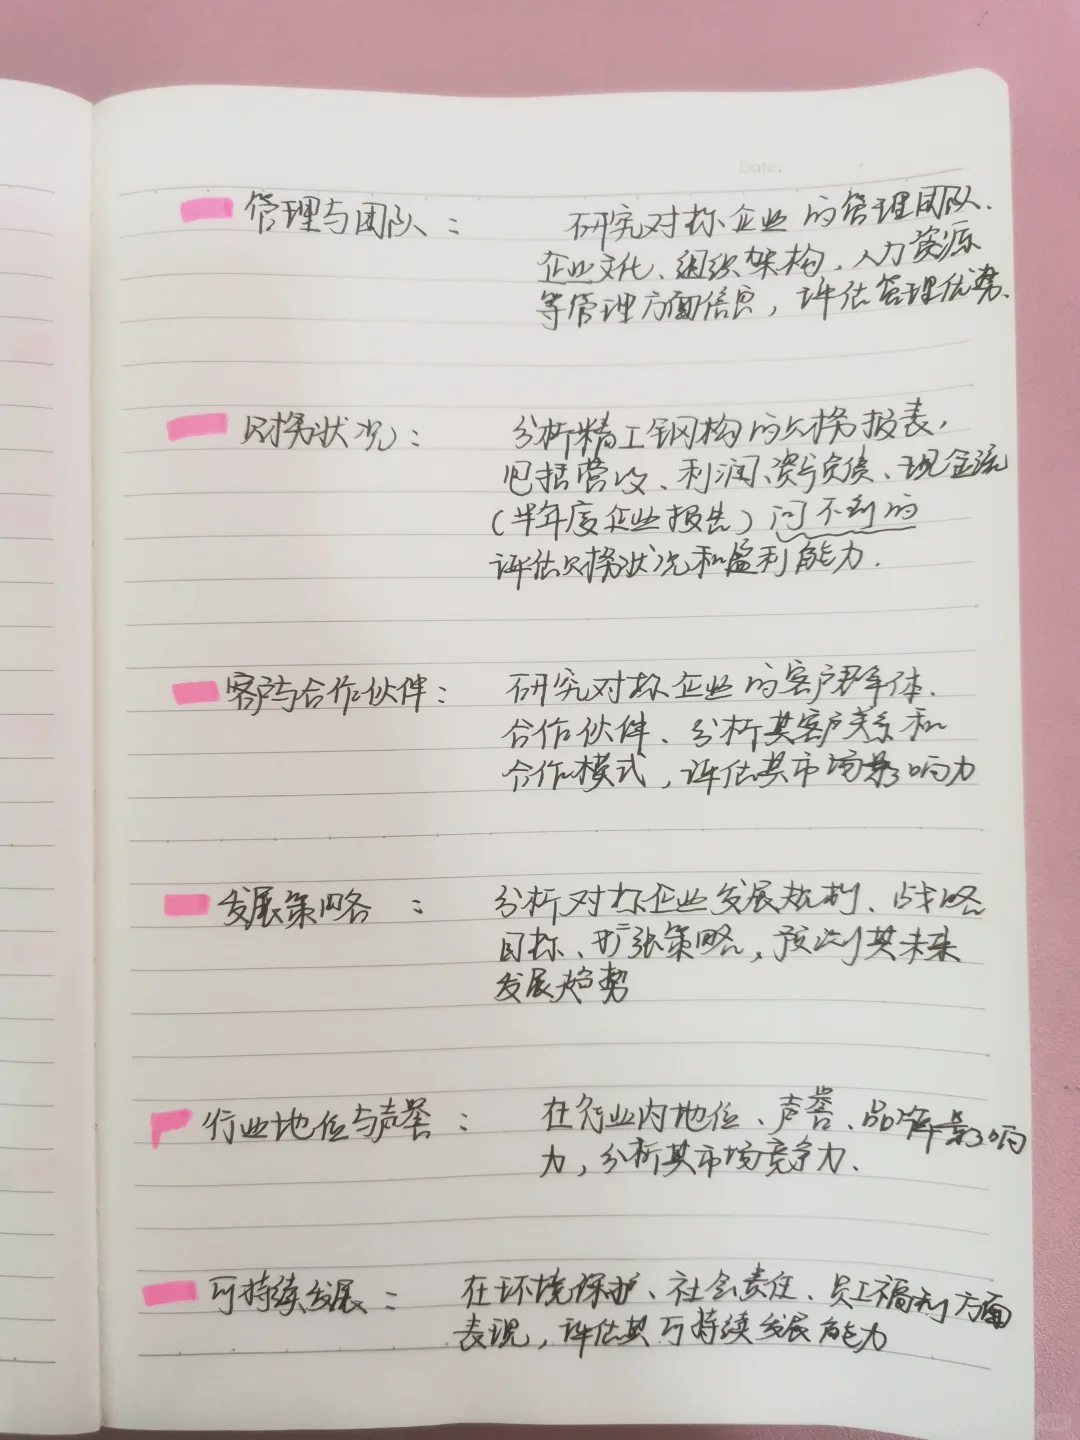 Date.
管理与团队： 研究对标企业的管理团队、
企业文化、组织架构、人力资源
等管理方面信息，评估管理优势、
财务状况： 分析精工钢构的财务报表，
包括营收、利润、资与负债、现金流
(半年度企业报告) 问不到的
评估财务状况和盈利能力.
客户与合作伙伴： 研究对标企业的客户群体.
合作伙伴、分析其客户关系和
合作模式，评估其市场影响力
发展策略： 分析对标企业发展规划、战略
目标、扩张策略，预测其未来
发展趋势
行业地位与声誉： 在行业内地位、声誉、品牌影响
力，分析其市场竞争力.
可持续发展： 在环境保护、社会责任、员工福利方面
表现，评估其可持续发展能力